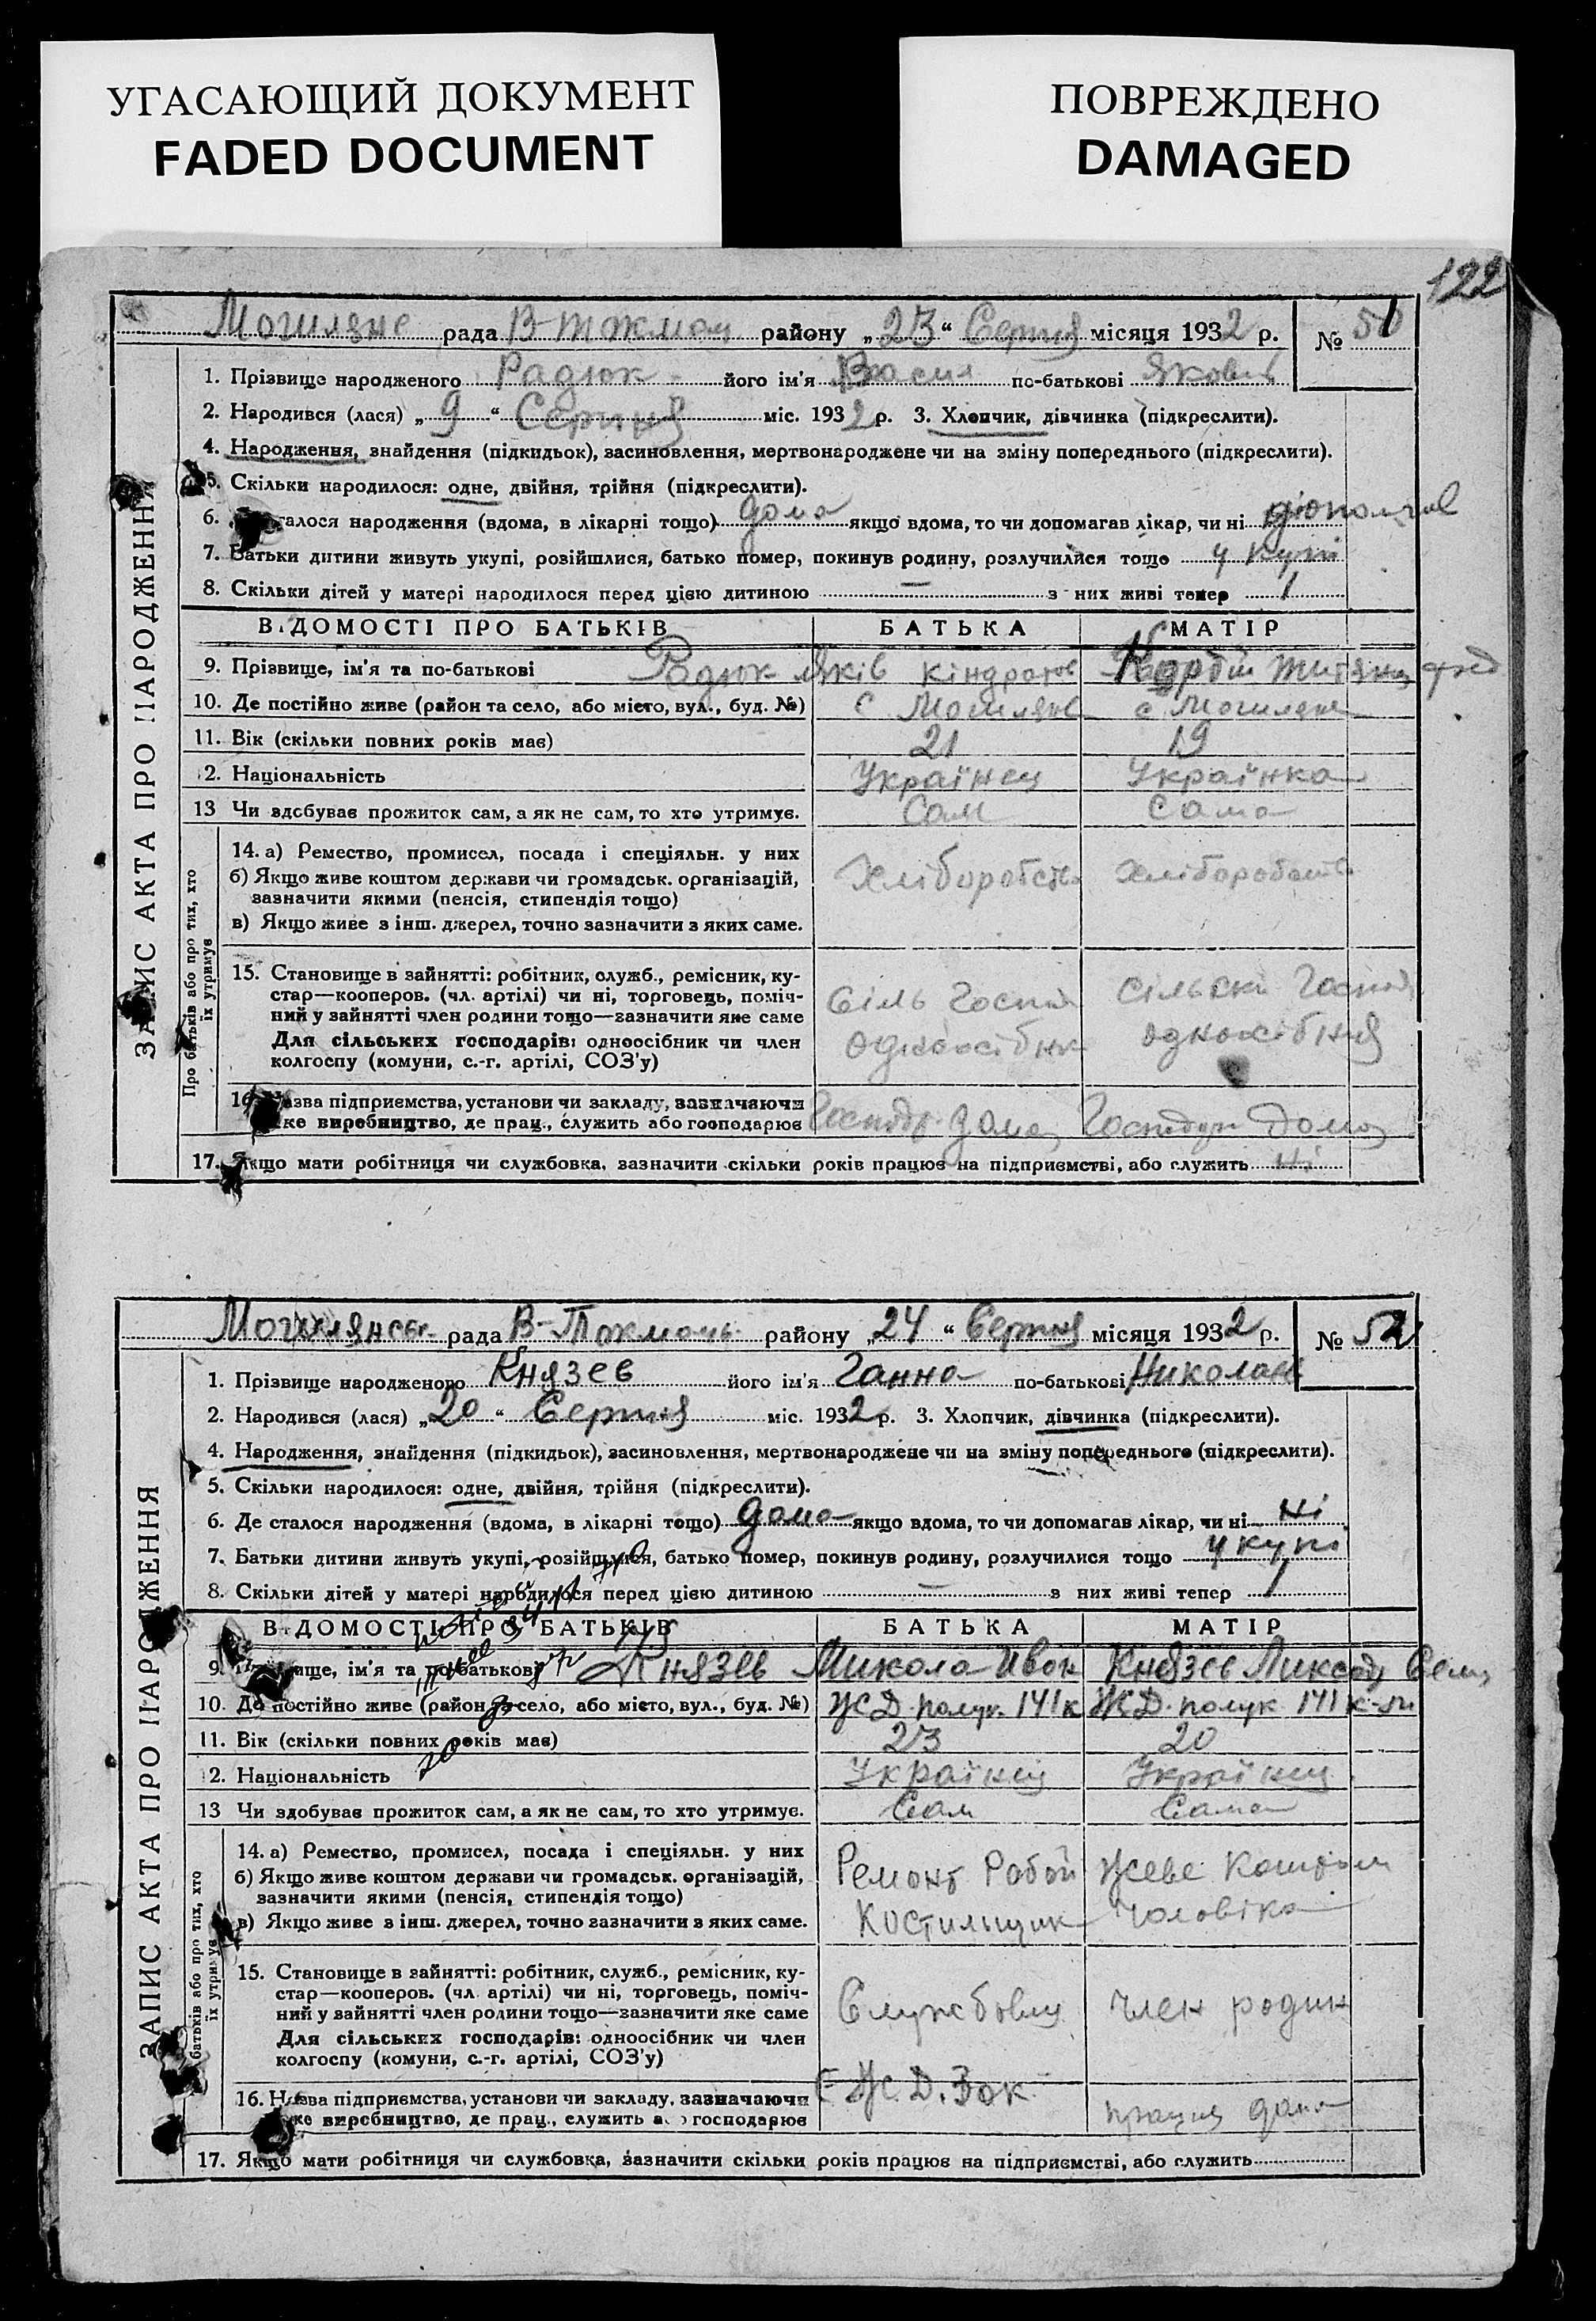 УГАСАЮЩИЙ ДОКУМЕНТ
FADED DOCUMENT
ПОВРЕЖДЕНО
DAMAGED
122
Могиляне рада В-Токмац району „23“ Серпня місяця 1932 р. № 51
1. Прізвище народженого Радюк його ім'я Василь по-батькові Яковів
2. Народився (лася) „9“ Серпня міс. 1932 р. 3. Хлопчик, дівчинка (підкреслити).
4. Народження, знайдення (підкидьок), засиновлення, мертвонароджене чи на зміну попереднього (підкреслити).
5. Скільки народилося: одне, двійня, трійня (підкреслити).
6. талося народження (вдома, в лікарні тощо) дома якщо вдома, то чи допомагав лікар, чи ні
7. Батьки дитини живуть укупі, розійшлися, батько помер, покинув родину, розлучилися тощо укупі
8. Скільки дітей у матері народилося перед цією дитиною — з них живі тепер 1
ЗАПИС АКТА ПРО НАРОДЖЕННЯ
ВІДОМОСТІ ПРО БАТЬКІВ БАТЬКА МАТІР
9. Прізвище, ім'я та по-батькові Радюк Яків Кіндратов
10. Де постійно живе (район та село, або місто, вул., буд. №) с Могиляне с Могиляне
11. Вік (скільки повних років має) 21 19
12. Національність Українец Українка
13 Чи здобуває прожиток сам, а як не сам, то хто утримує. Сам Сама
Про батьків або про тих, хто їх утримує
14. а) Ремество, промисел, посада і спеціяльн. у них
б) Якщо живе коштом держави чи громадськ. організацій,
зазначити якими (пенсія, стипендія тощо)
в) Якщо живе з інш. джерел, точно зазначити з яких саме.
Хліборобство Хліборобство
15. Становище в зайнятті: робітник, служб., ремісник, ку-
стар—кооперов. (чл. артілі) чи ні, торговець, поміч-
ний у зайнятті член родини тощо—зазначити яке саме
Для сільських господарів: одноосібник чи член
колгоспу (комуни, с.-г. артілі, СОЗ'у)
Сіль Госпо Сільски Госпо
одноосібник одноосібниц
16. Назва підприємства, установи чи закладу, зазначаючи
яке виробництво, де прац., служить або господарює
Господр. дома Господр дома
17. Якщо мати робітниця чи службовка, зазначити скільки років працює на підприємстві, або служить ні
Могилянськ рада В-Токмач. району „24“ Серпня місяця 1932 р. № 52
1. Прізвище народженого Князев його ім'я Ганна по-батькові Николаї
2. Народився (лася) „20“ Серпня міс. 1932 р. 3. Хлопчик, дівчинка (підкреслити).
4. Народження, знайдення (підкидьок), засиновлення, мертвонароджене чи на зміну попереднього (підкреслити).
5. Скільки народилося: одне, двійня, трійня (підкреслити).
6. Де сталося народження (вдома, в лікарні тощо) дома якщо вдома, то чи допомагав лікар, чи ні ні
7. Батьки дитини живуть укупі, розійшлися, батько помер, покинув родину, розлучилися тощо укупі
8. Скільки дітей у матері народилося перед цією дитиною — з них живі тепер 1
ЗАПИС АКТА ПРО НАРОДЖЕННЯ
ВІДОМОСТІ ПРО БАТЬКІВ БАТЬКА МАТІР
9. Прізвище, ім'я та по-батькові Князев Микола Ивон Князев
10. Де постійно живе (район та село, або місто, вул., буд. №) ЖД. полук. 141 к ЖД. полук 141 к-м
11. Вік (скільки повних років має) 23 20
12. Національність Українец Українец
13 Чи здобуває прожиток сам, а як не сам, то хто утримує. Сам Сама
батьків або про тих, хто їх утримує
14. а) Ремество, промисел, посада і спеціяльн. у них
б) Якщо живе коштом держави чи громадськ. організацій,
зазначити якими (пенсія, стипендія тощо)
в) Якщо живе з інш. джерел, точно зазначити з яких саме.
Ремонт Робоч Живе Коштом
Костильщик чоловіка
15. Становище в зайнятті: робітник, служб., ремісник, ку-
стар—кооперов. (чл. артілі) чи ні, торговець, поміч-
ний у зайнятті член родини тощо—зазначити яке саме
Для сільських господарів: одноосібник чи член
колгоспу (комуни, с.-г. артілі, СОЗ'у)
Службовец член родин
16. Назва підприємства, установи чи закладу, зазначаючи
яке виробництво, де прац., служить або господарює
Ж. Д. Зок працює дома
17. Якщо мати робітниця чи службовка, зазначити скільки років працює на підприємстві, або служить